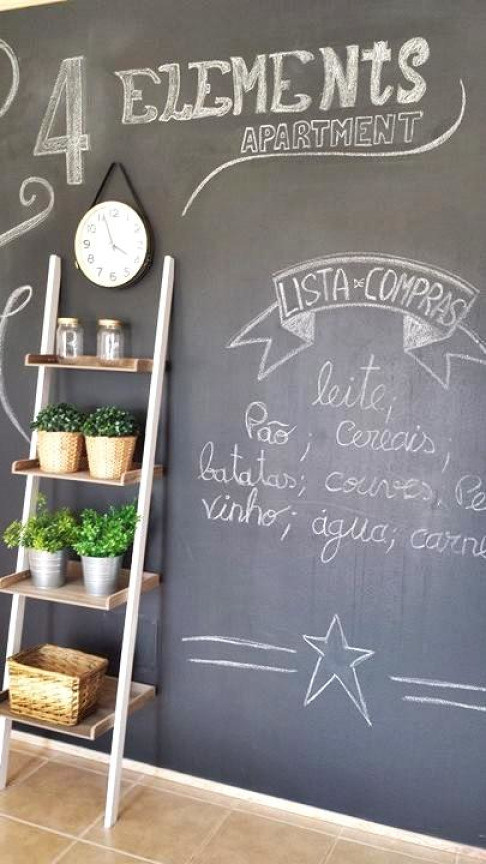 4 ELEMENtS
APARTMENT
LISTA DE COMPRAS
leite;
Pão; Cereais;
batatas; couves, Pe
vinho; água; carne
12
11 1
10 2
9 3
8 4
7 6 5